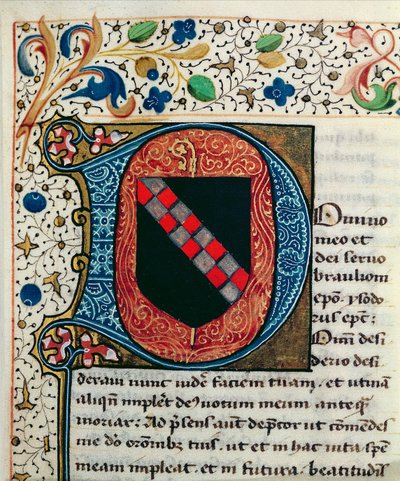 Domino
meo et
dei seruo
braulioni
epo. ysido
rus eps:
Omi desi
derio desi
deraui nunc uide faciem tuam. et utinā
aliqn̄ implet de⁹ uotum meum anteq̄
moriar: Ad psens aut depcor ut comēdes
me dō orōnibz tuis. ut et in hac uita spem
meam impleat. et in futura. beatitudīs